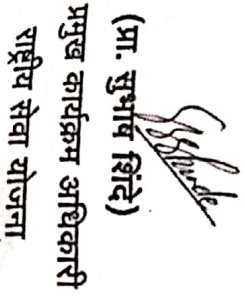 (प्रा. सुभाष शिंदे)
प्रमुख कार्यक्रम अधिकारी
राष्ट्रीय सेवा योजना